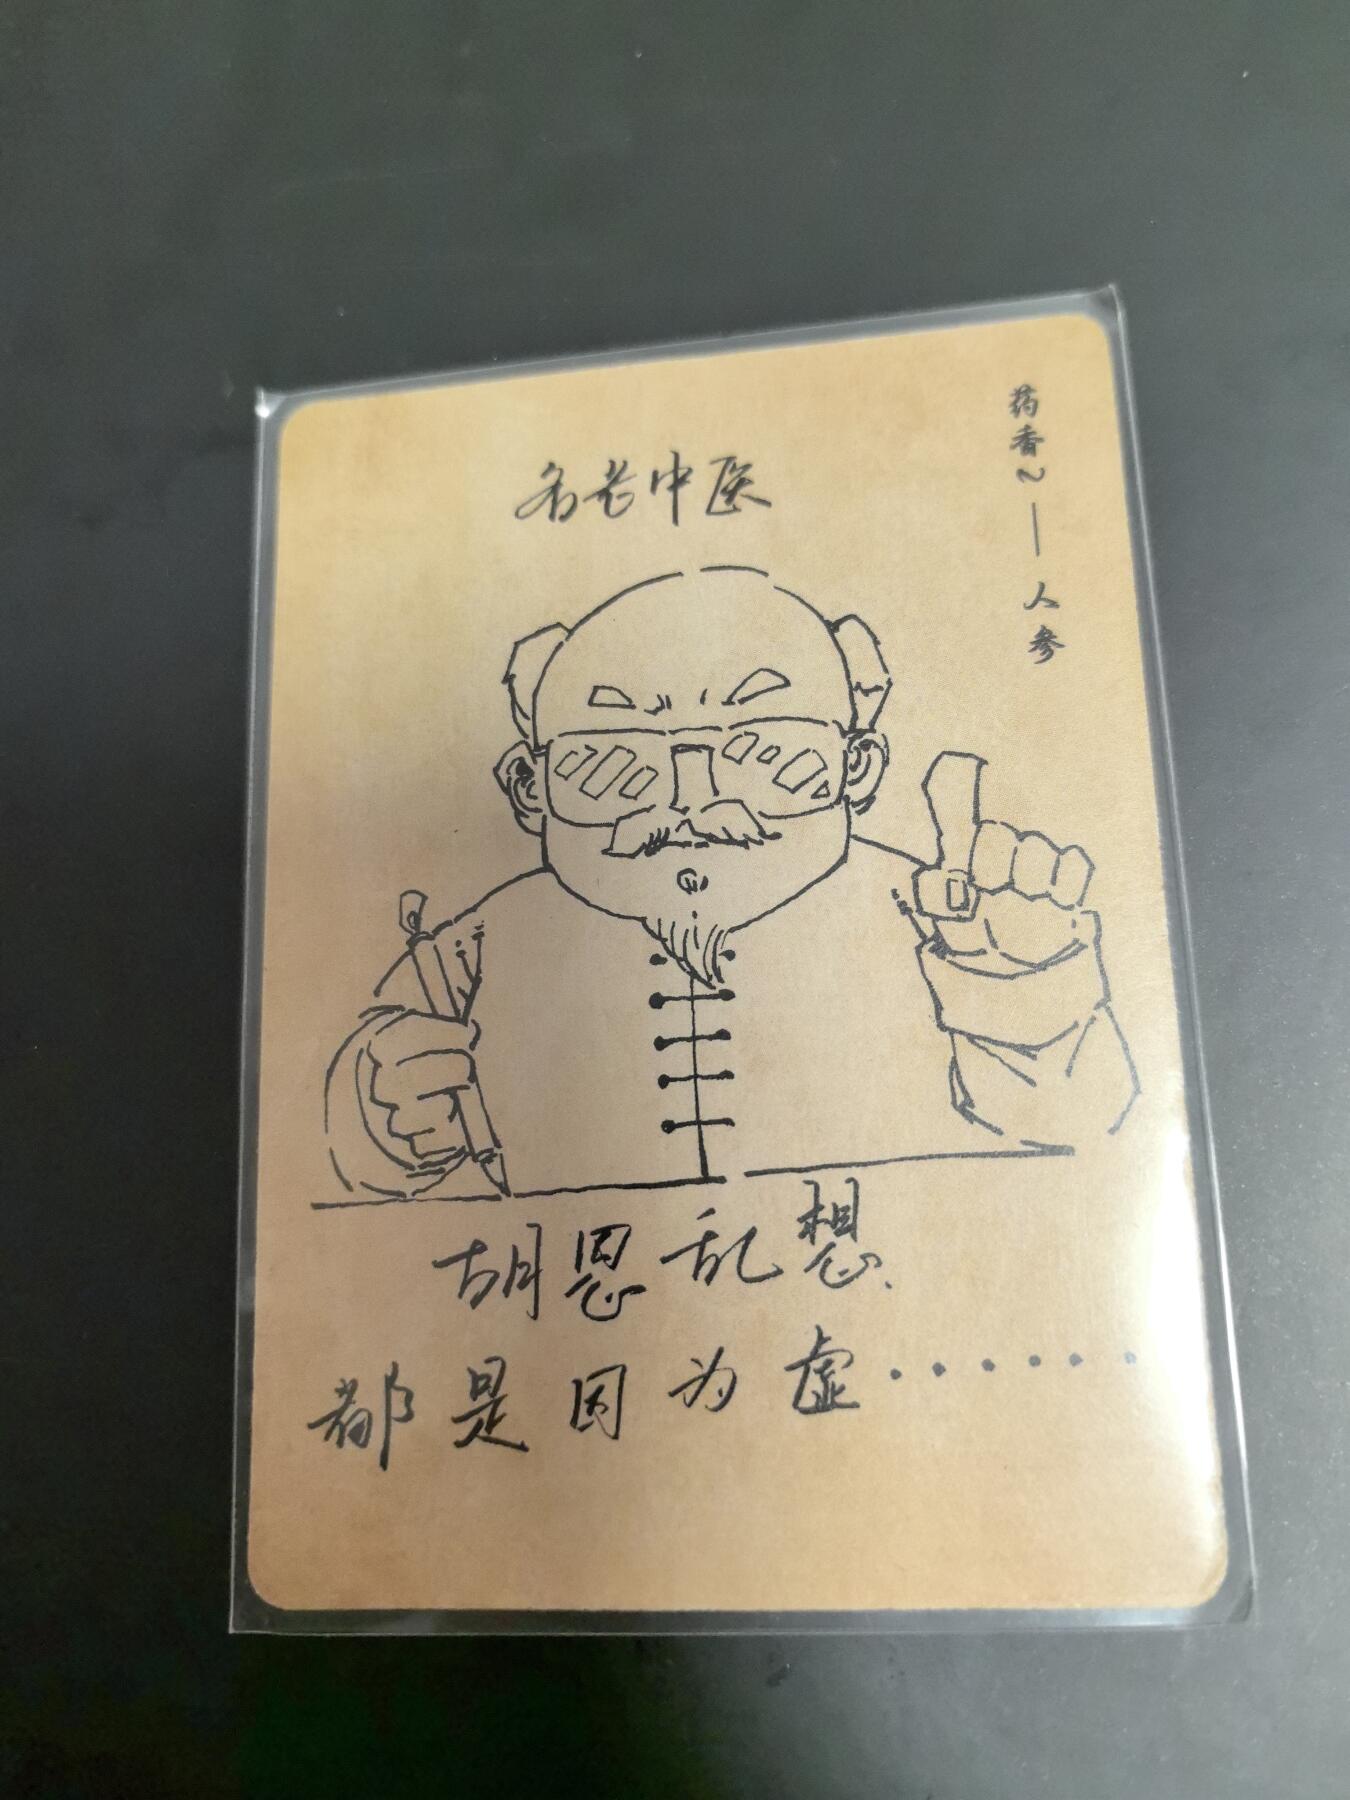 药香2——人参
名老中医
胡思乱想.
都是因为虚······